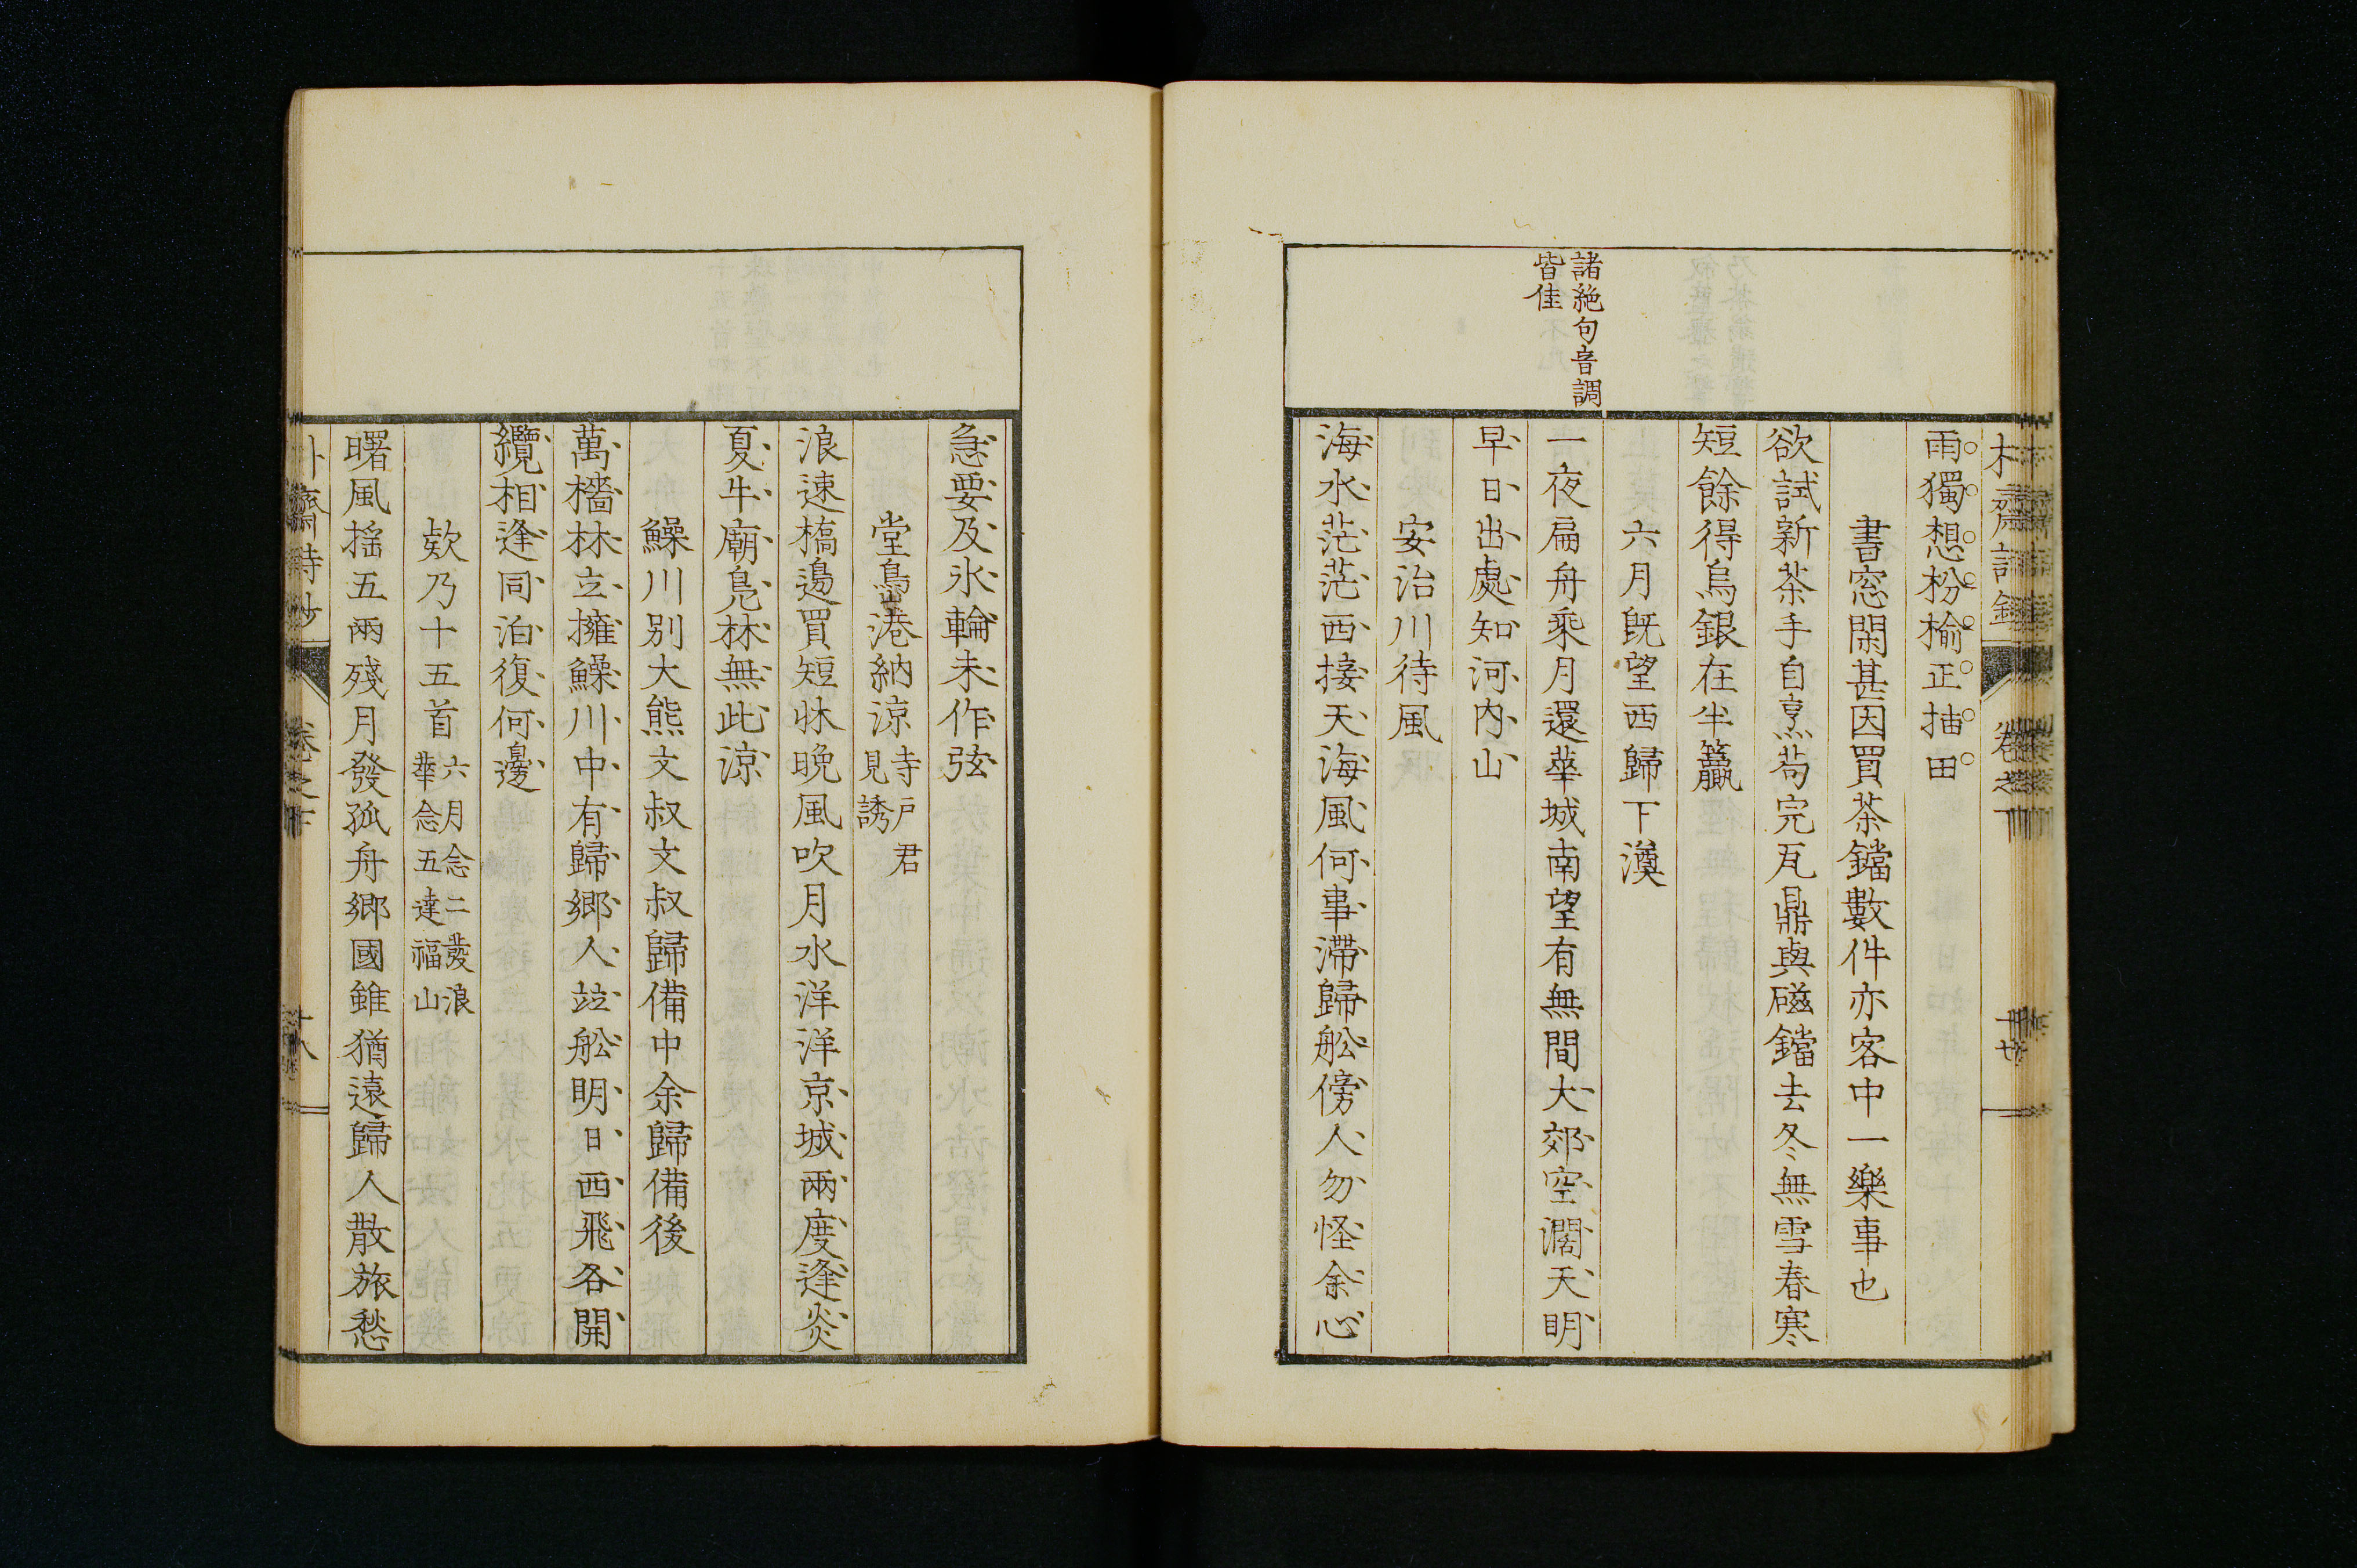 諸絶句音調
皆佳
雨獨想枌楡正插田
書窓閑甚因買茶鐺數件亦客中一樂事也
欲試新茶手自烹苟完瓦鼎與磁鐺去冬無雪春寒
短餘得烏銀在半籯
六月既望西歸下澳
一夜扁舟乘月還華城南望有無間大郊空濶天明
早日出處知河内山
安治川待風
海水茫茫西接天海風何事滯歸舩傍人勿怪余心
急要及氷輪未作弦
堂島港納涼寺戸君
見誘
浪速橋邊買短牀晩風吹月水洋洋京城兩度逢炎
夏牛廟鳬林無此涼
鱢川别大熊文叔文叔歸備中余歸備後
萬檣林立擁鱢川中有歸郷人竝舩明日西飛各開
纜相逢同泊復何邊
欸乃十五首六月念二發浪
華念五達福山
曙風揺五兩殘月發孤舟郷國雖猶遠歸人散旅愁
卷之下
十八